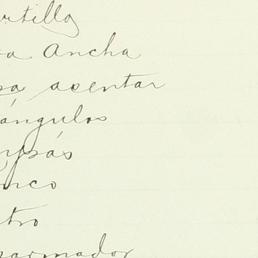 rtillo
a Ancha
sa asentar
ángulos
inco
tro
sarmador